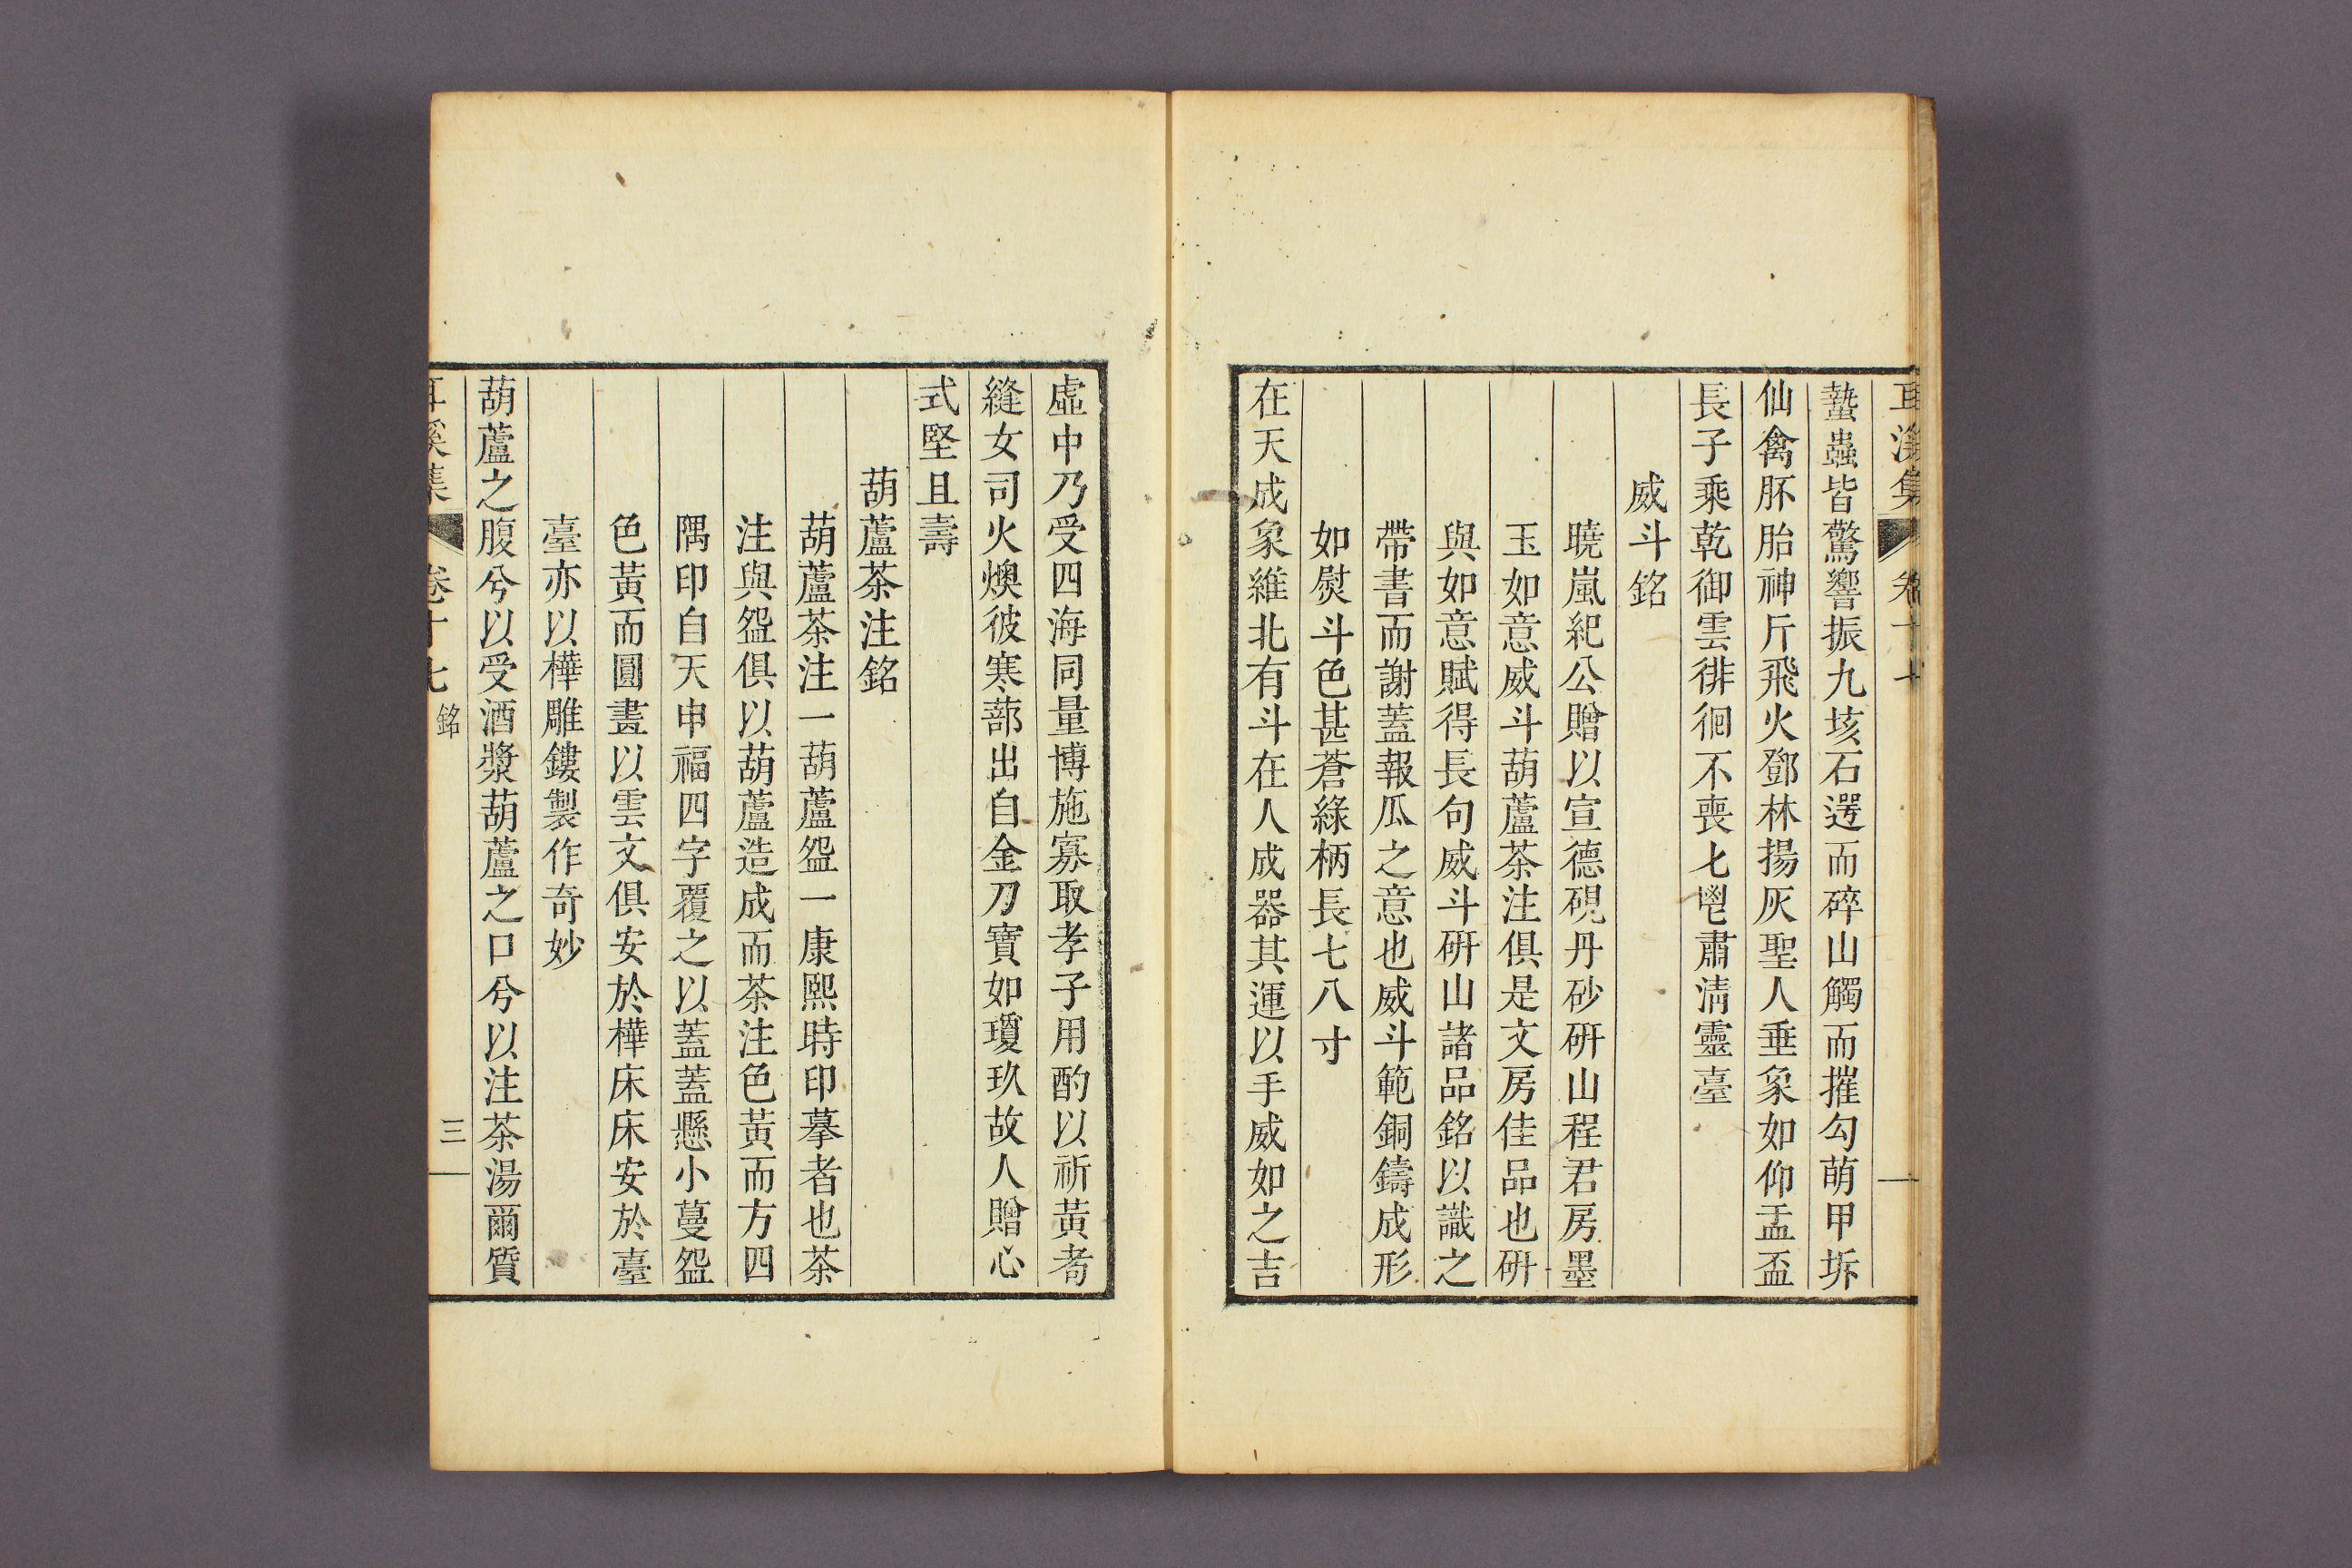 蟄蟲皆驚響振九垓石遌而碎山觸而摧勾萌甲坼
仙禽胚胎神斤飛火鄧林揚灰聖人垂象如仰盂盃
長子乘乾御雲徘徊不喪匕鬯肅清靈臺
威斗銘
曉嵐紀公贈以宣德硯丹砂硏山程君房墨
玉如意威斗葫蘆茶注俱是文房佳品也硏
與如意賦得長句威斗硏山諸品銘以識之
帶書而謝蓋報瓜之意也威斗範銅鑄成形
如熨斗色甚蒼綠柄長七八寸
在天成象維北有斗在人成器其運以手威如之吉
虛中乃受四海同量博施寡取孝子用酌以祈黃耇
縫女司火燠彼寒蔀出自金刀寶如瓊玖故人贈心
式堅且壽
葫蘆茶注銘
葫蘆茶注一葫蘆盌一康熙時印摹者也茶
注與盌俱以葫蘆造成而茶注色黃而方四
隅印自天申福四字覆之以蓋蓋懸小蔓盌
色黃而圓畫以雲文俱安於樺床床安於臺
臺亦以樺雕鏤製作奇妙
葫蘆之腹兮以受酒漿葫蘆之口兮以注茶湯爾質
耳溪集 卷十七 銘 三